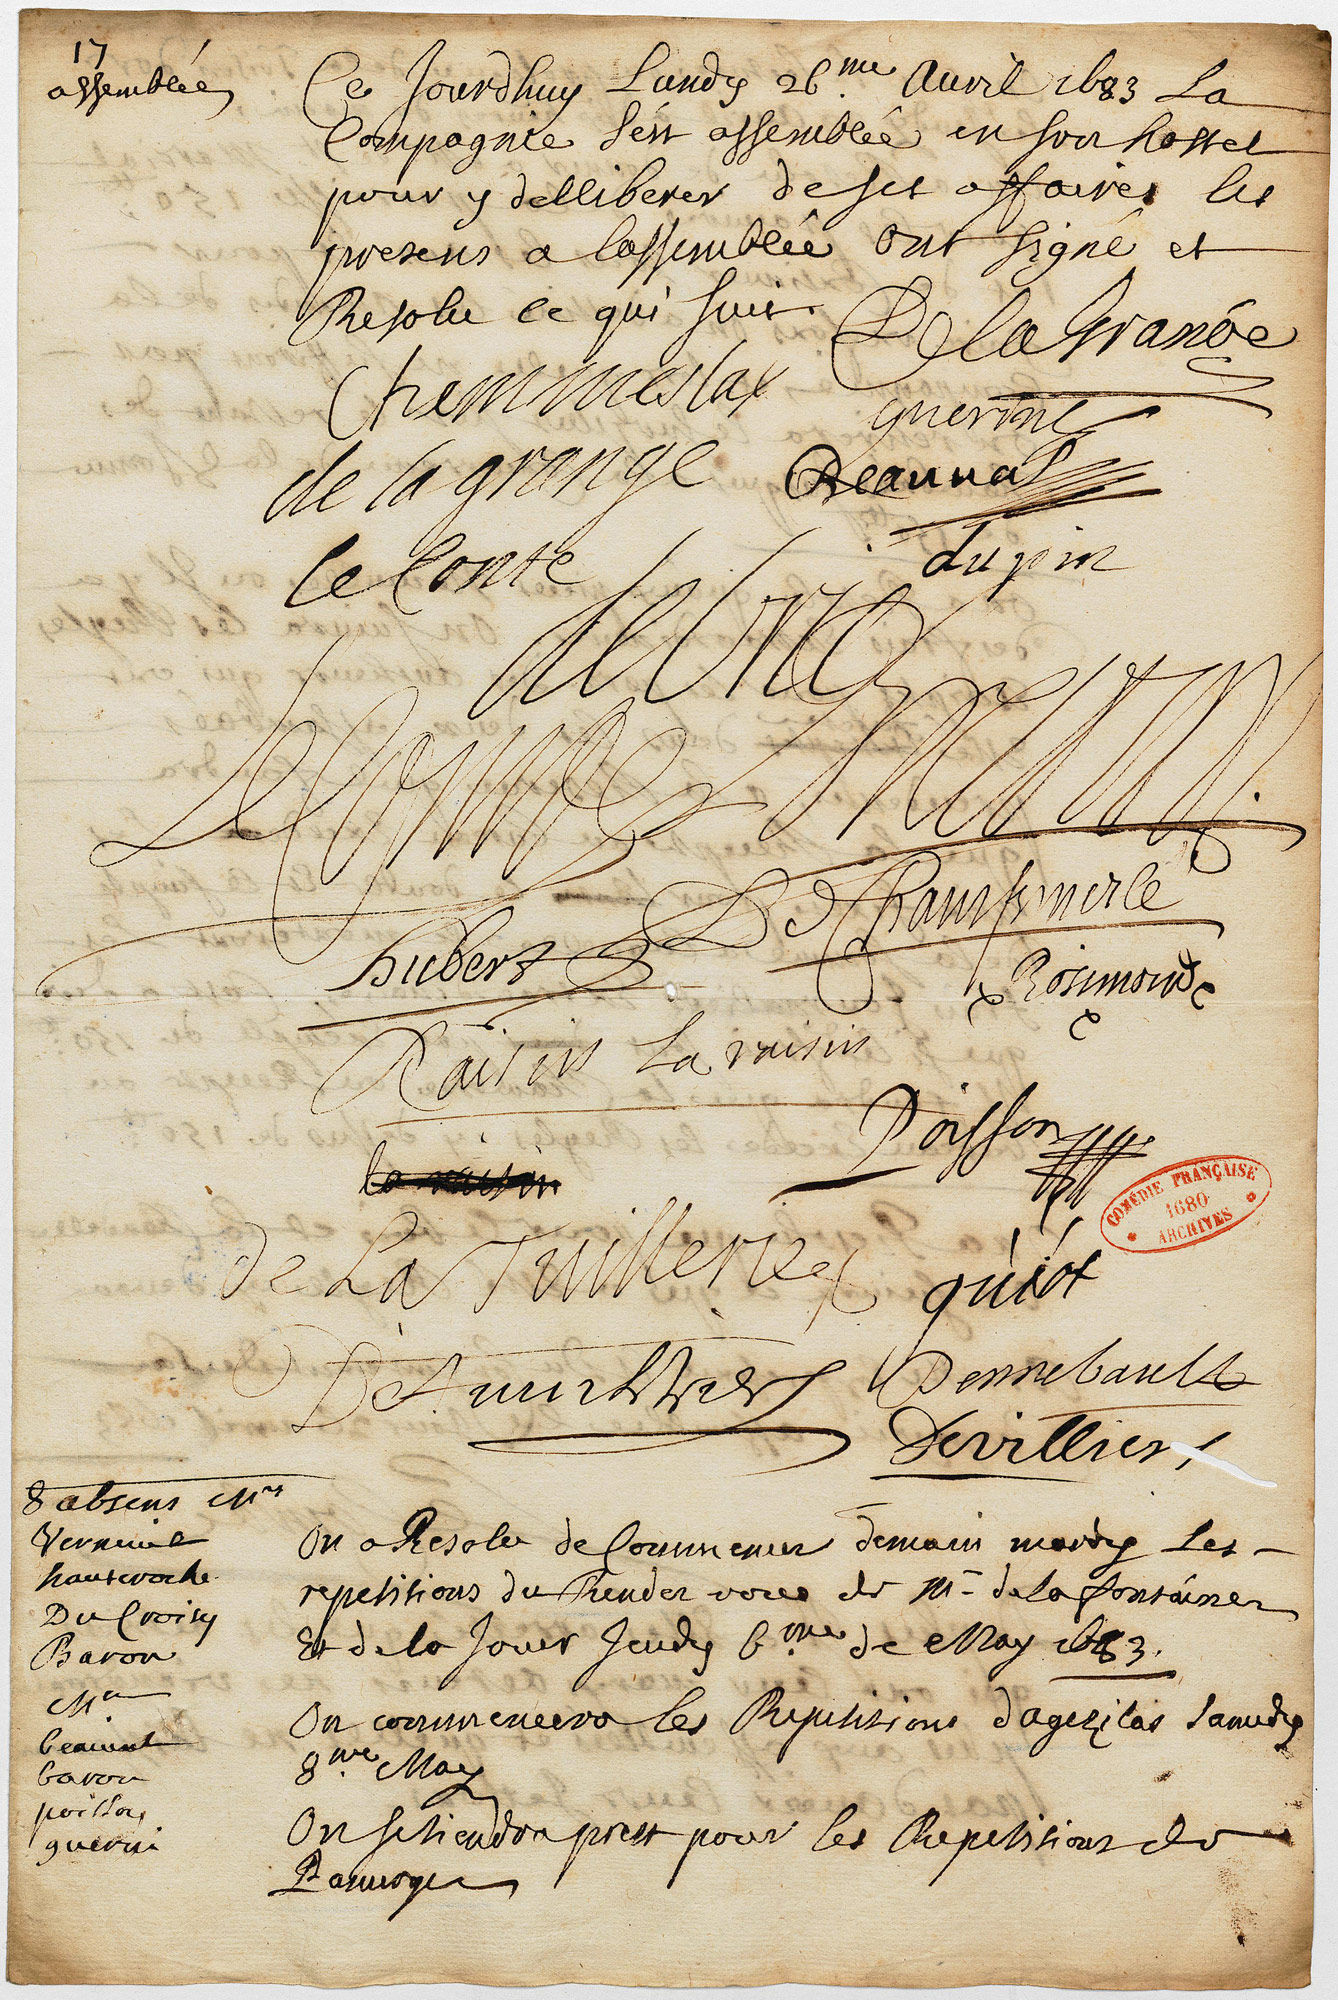 17
assemblée
Ce Jourdhuy Lundy 26.me Avril 1683 La
Compagnie sest assemblée en son hostel
pour y delliberer de ses affaires les
presens a lassemblée ont signé et
Resolu ce qui suit
De la Grange
Chemmeslay
guerin
de la grange
Beauval
le Conte
dupin
de brie
Le Comte
De Champmerle
hubert
Rosimond
Raisin La raisin
Poisson
la raisin
COMÉDIE FRANÇAISE
1680
ARCHIVES
de La Tuillerie
guiot
Dennebault
Devilliers
8 absens Mrs
Verneuil
hauteroche
Du Croisy
Baron
Mlle
beauval
baron
poisson
guerin
On a Resolu de Commencer demain mardy Les
repetitions du Rendez vous de Mr de la fontaine
Et de la Jouer Jeudy 6.me de May 1683.
On commencera les Repetitions dagezilas Samedy
8.me May
On se tiendra prest pour les Repetitions de
Panurge